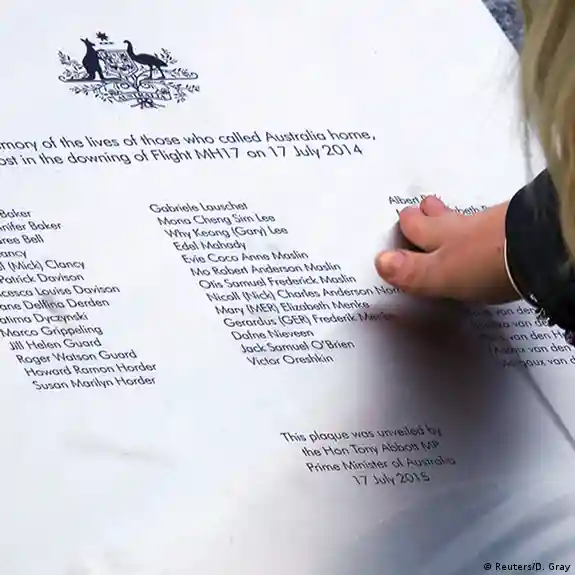 mory of the lives of those who called Australia home,
ost in the downing of Flight MH17 on 17 July 2014
Baker
nnifer Baker
ree Bell
ancy
el (Mick) Clancy
Patrick Davison
ncesca Louise Davison
ane Delfina Derden
atima Dyczynski
Marco Grippeling
Jill Helen Guard
Roger Watson Guard
Howard Ramon Horder
Susan Marilyn Horder
Gabriele Lauschet
Mona Cheng Sim Lee
Why Keong (Gary) Lee
Edel Mahady
Evie Coco Anne Maslin
Mo Robert Anderson Maslin
Otis Samuel Frederick Maslin
Nicoll (Nick) Charles Anderson Nor
Mary (MER) Elizabeth Menke
Gerardus (GER) Frederik Menke
Dafne Nieveen
Jack Samuel O'Brien
Victor Oreshkin
Albert
van den
van den
van den H
van den
van den
This plaque was unveiled by
the Hon Tony Abbott MP
Prime Minister of Australia
17 July 2015
© Reuters/D. Gray